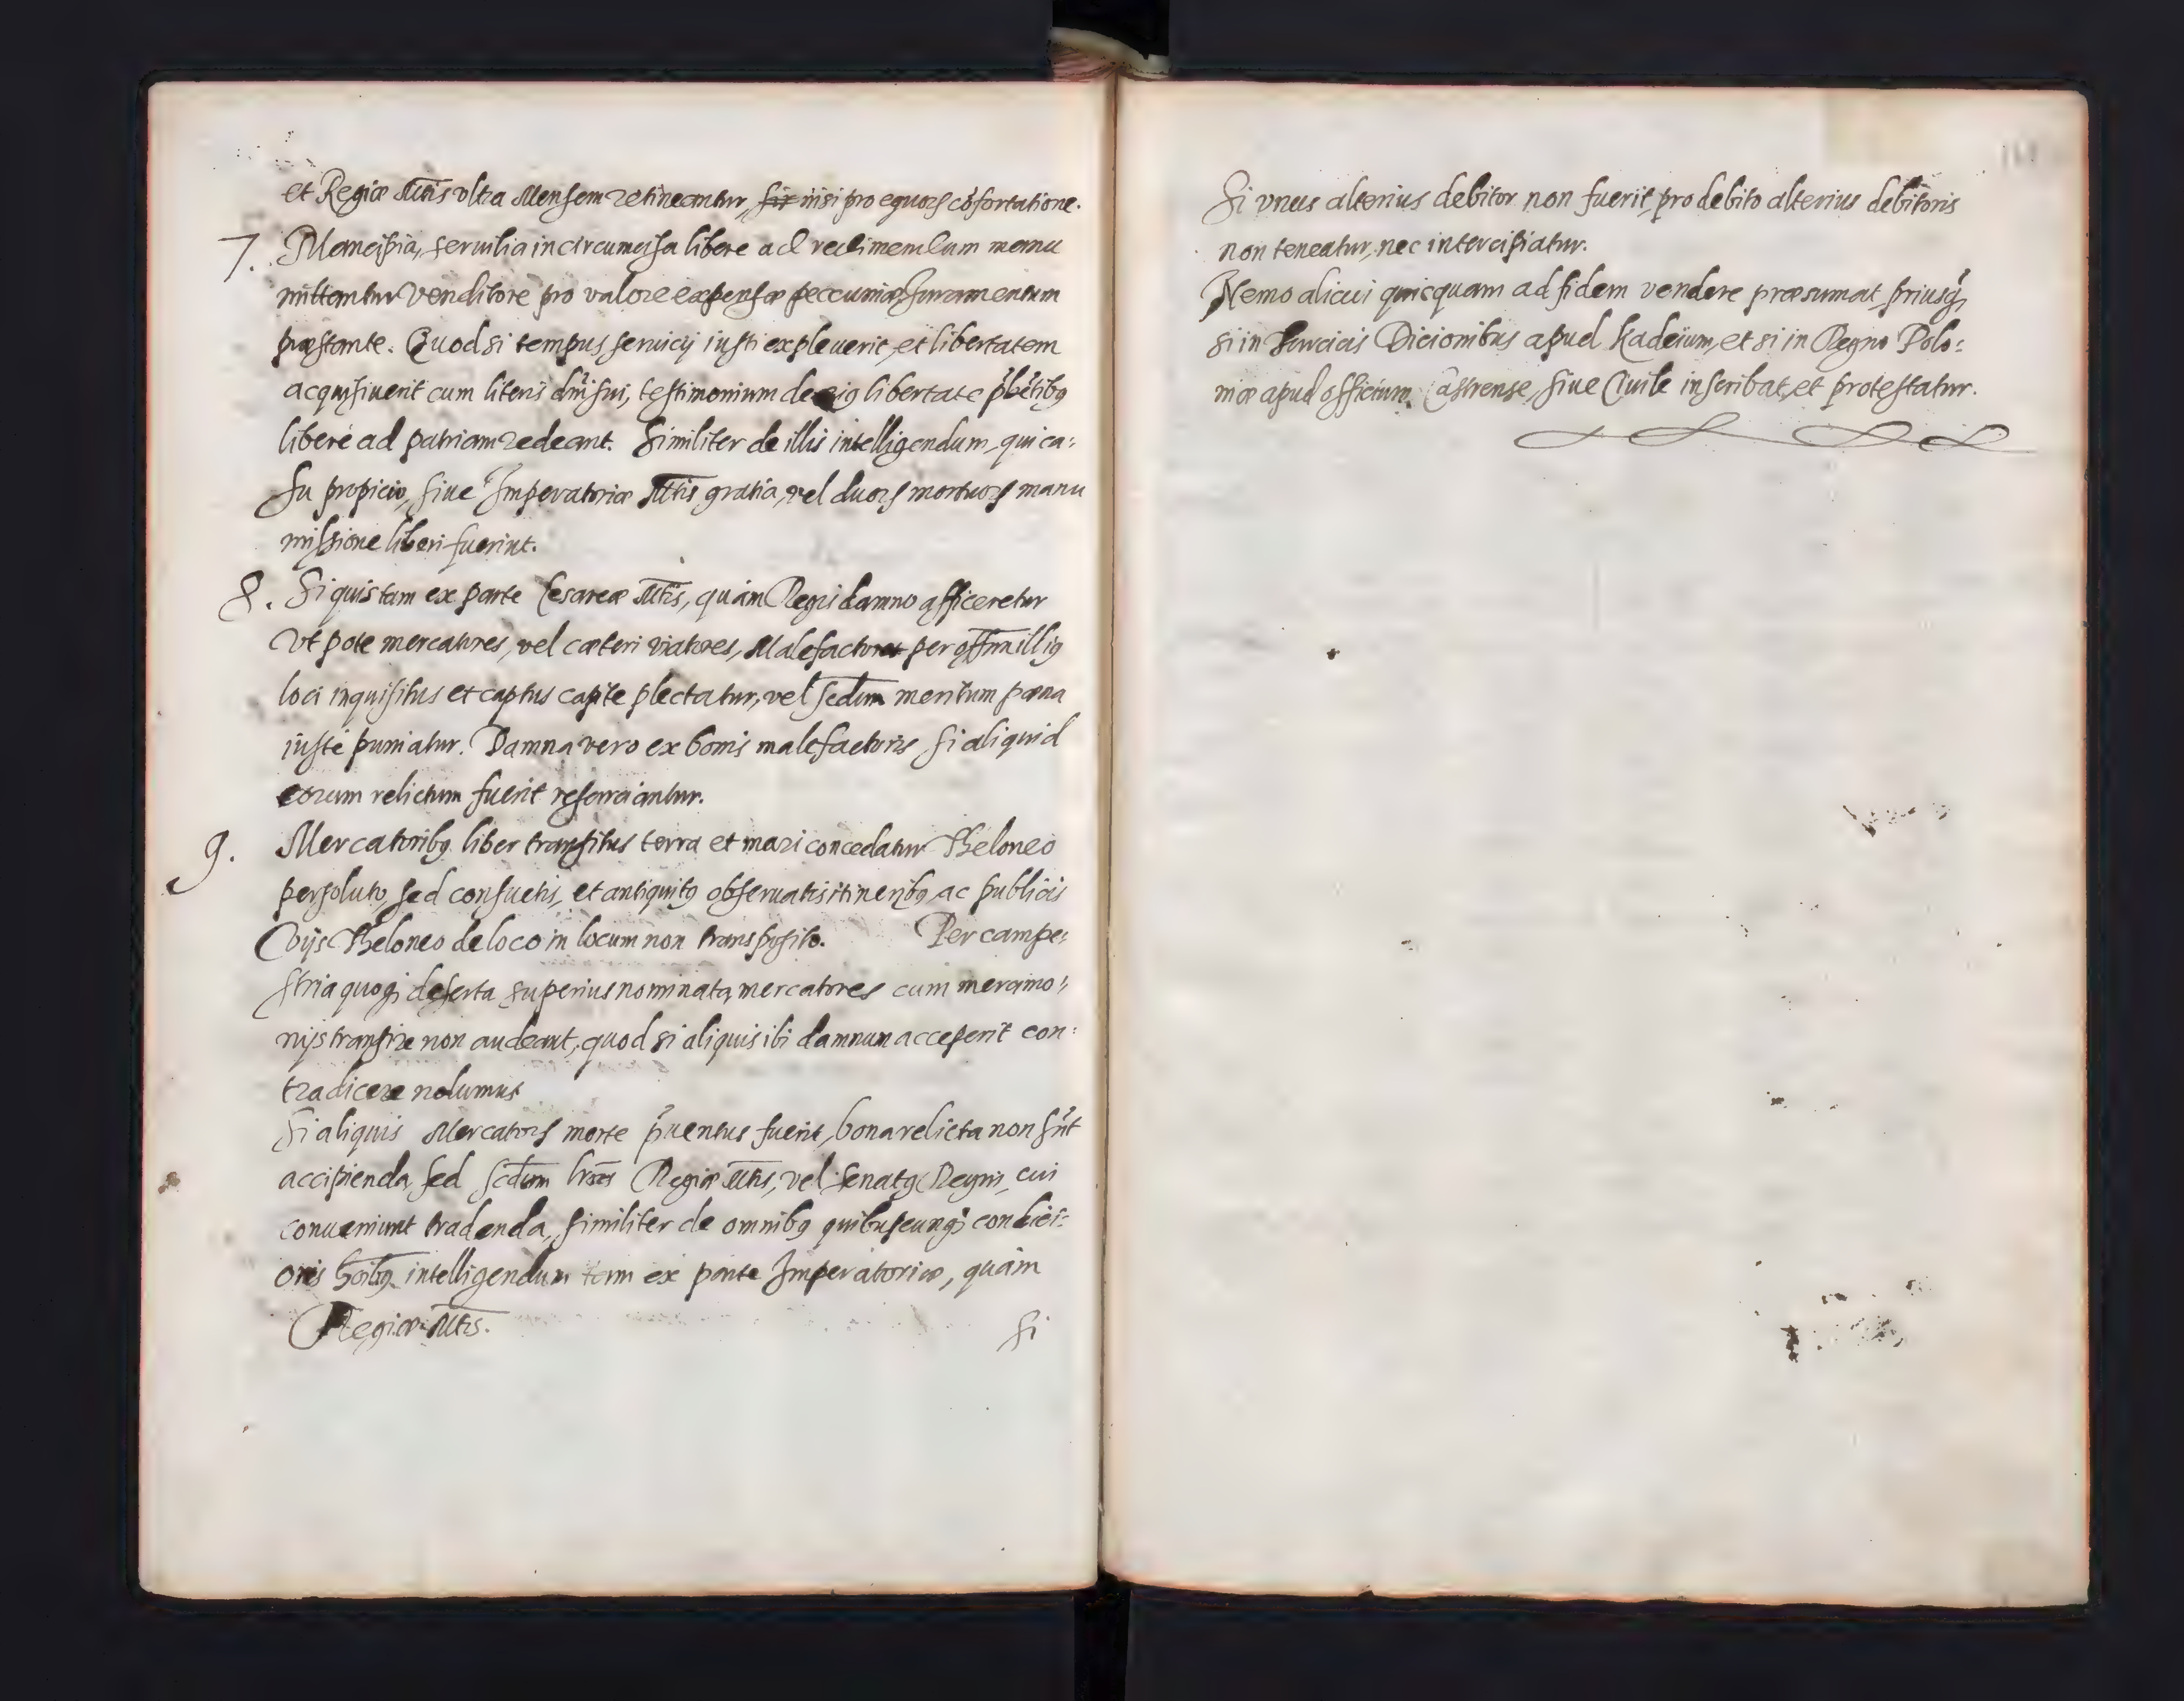 et Regiæ Mtis vltra Mensem retineantur, nisi pro equorꝭ cōfortatione.
7. Mancipia, seruilia incircumcisa libere ad redimendum manu
mittantur Venditore pro valore expensæ peccuniæ, Juramentum
præstante. Quod si tempus seruicij iusti expleuerit, et libertatem
acquisiuerit cum literis dni sui, testimonium de eiꝰ libertate p̃bẽtibꝰ
liberè ad patriam redeant. Similiter de illis intelligendum, qui ca:
su propicio, siue Imperatoriæ Mtis gratia, vel duorꝭ mortuorꝭ manu
missione liberi fuerint.
8. Si quis tam ex parte Cesareæ Mtis, quàm Regis damno afficeretur
Vt pote mercatores, vel cæteri viatores, Malefactor per offm illiꝰ
loci inquisitus et captus capite plectatur, vel scdum meritum pœna
iustè puniatur. Damna vero ex bonis malefactoris si aliquid
eorum relictum fuerit resarciantur.
9. Mercatoribꝰ liber transitus terra et mari concedatur Theloneo
persoluto, sed consuetis, et antiquitꝰ obseruatis itineribꝰ ac publicis
Vijs Theloneo de loco in locum non transposito. Per campe:
stria quoqꝫ deserta superius nominata mercatores cum mercimo:
nijs transire non audeant, quod si aliquis ibi damnum acceperit con:
tradicere nolumus
Si aliquis Mercatorꝭ morte p̃uentus fuerit, bona relicta non sũt
accipienda, sed scdum lras Regiæ Mtis, vel Senatꝰ Regni, cui
conueniunt tradenda, similiter de omnibꝰ quibuscunqꝫ condici:
onis hoibꝰ intelligendum tam ex parte Imperatoriæ, quàm
Regiæ Mtis.
Si
Si vnus alterius debitor non fuerit, pro debito alterius debitoris
non teneatur, nec intercipiatur.
Nemo alicui quicquam ad fidem vendere præsumat, priusqꝫ
si in Turcicis Dicionibus apud Kadeium, et si in Regno Polo:
niæ apud officium Castrense, siue Ciuile inscribat, et protestatur.